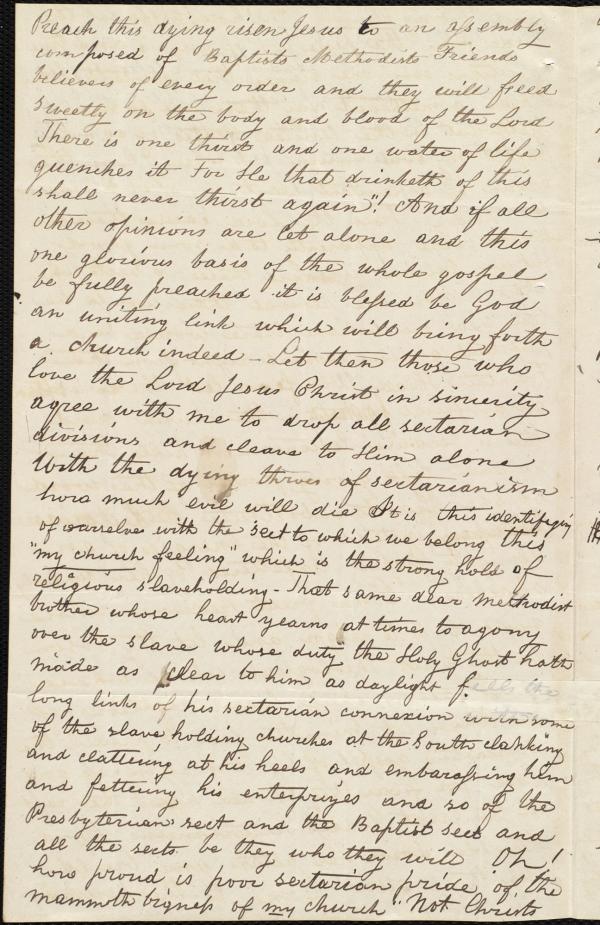 Preach this dying risen Jesus to an assembly
composed of Baptists Methodists Friends
believers of every order and they will feed
sweetly on the body and blood of the Lord
There is one thirst and one water of life
quenches it For He that drinketh of this
shall never thirst again"! And if all
other opinions are let alone and this
one glorious basis of the whole gospel
be fully preached it is blessed be God
an uniting link which will bring forth
a church indeed – Let then those who
love the Lord Jesus Christ in sincerity
agree with me to drop all sectarian
divisions and cleave to Him alone
With the dying throes of sectarianism
how much evil will die It is this identifying
of ourselve with the sect to which we belong this
"my church feeling" which is the strong hold of
religious slaveholding – That same dear methodist
brother whose heart yearns at times to agony
over the slave whose duty the Holy Ghost hath
made as clear to him as daylight feels the
long links of his sectarian connexion with some
of the slave holding churches at the South clanking
and clattering at his heels and embarassing him
and fettering his enterprizes and so of the
Presbyterian sect and the Baptist sect and
all the sects be they who they will Oh!
how proud is poor sectarian pride of the
mammoth bigness of my church. Not Christs